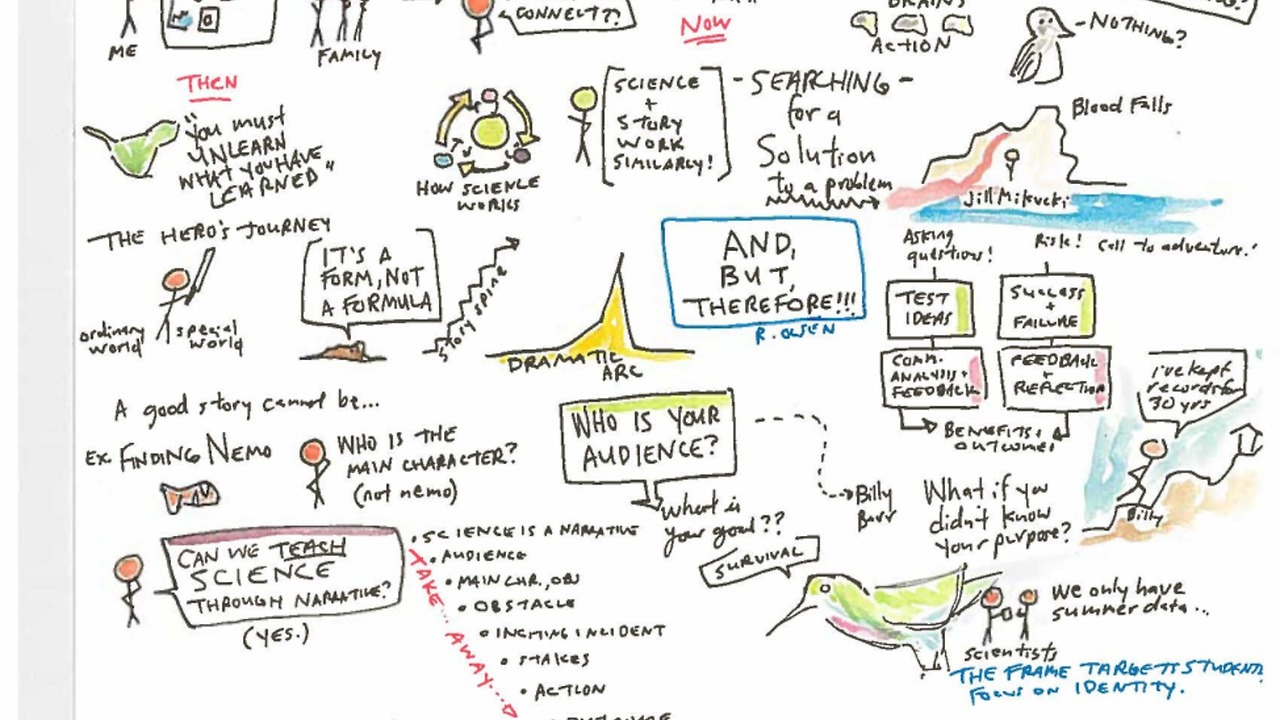 CONNECT??
ME
FAMILY
NOW
BRAINS
ACTION
-NOTHING?
THEN
"You must
UNLEARN
WHAT YOU HAVE
LEARNED"
HOW SCIENCE
WORKS
SCIENCE
+
STORY
WORK
SIMILARLY!
-SEARCHING-
for a
Solution
to a problem
Blood Falls
Jill Mikucki
-THE HERO'S JOURNEY
ordinary
world
special
world
IT'S A
FORM, NOT
A FORMULA
STORY SPINE
DRAMATIC
ARC
AND,
BUT,
THEREFORE!!!
R. OLSEN
Asking
questions!
Risk!
Call to adventure!
TEST
IDEAS
SUCCESS
+
FAILURE
COMM.
ANALYSIS+
FEEDBACK
FEEDBACK
+
REFLECTION
BENEFITS+
OUTCOMES
I've kept
records for
30 yrs
Billy
A good story cannot be...
EX. FINDING NEMO
WHO IS THE
MAIN CHARACTER?
(not nemo)
WHO IS YOUR
AUDIENCE?
What is
your goal??
Billy
Barr
What if you
didn't know
your purpose?
CAN WE TEACH
SCIENCE
THROUGH NARRATIVE?
(YES.)
TAKE... AWAY...
• SCIENCE IS A NARRATIVE
• AUDIENCE
• MAIN CHR., OBJ
• OBSTACLE
• INCITING INCIDENT
• STAKES
• ACTION
SURVIVAL
We only have
summer data...
scientists
THE FRAME TARGETS STUDENT
FOCUS ON IDENTITY.